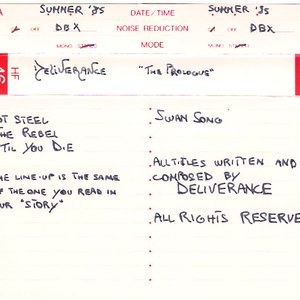 A SUMMER '85 DATE/TIME SUMMER '85
ON OFF DBX NOISE REDUCTION ON OFF DBX
MONO STEREO MODE MONO STEREO
HF DELIVERANCE "THE PROLOGUE"
OT STEEL
HE REBEL
TIL YOU DIE
HE LINE-UP IS THE SAME
F THE ONE YOU READ IN
UR "STORY"
SWAN SONG
ALL TITLES WRITTEN AND
COMPOSED BY
DELIVERANCE
ALL RIGHTS RESERVE